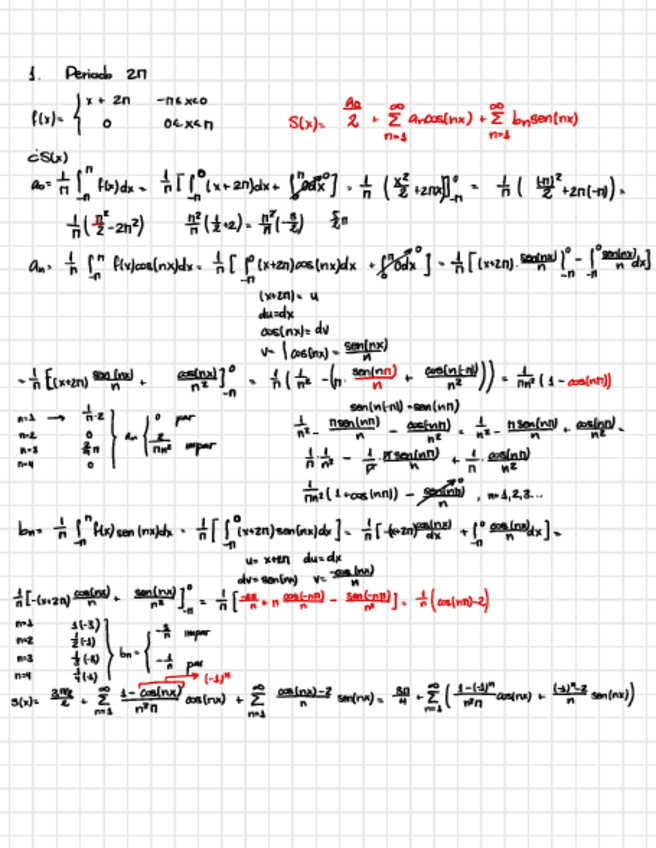 1. Periodo 2π
f(x)= { x + 2π   -π≤x<0
0   0≤x<π
S(x)= a₀/2 + ∑_{n=1}^{∞} aₙcos(nx) + ∑_{n=1}^{∞} bₙsen(nx)
¿S(x)
a₀= 1/π ∫_{-π}^{π} f(x)dx = 1/π [∫_{-π}^{0} (x+2π)dx + ∫_{0}^{π} 0dx] = 1/π (x²/2 + 2πx)]_{-π}^{0} = 1/π ( (-π)²/2 + 2π(-π)) =
1/π (π²/2 - 2π²)   π²/π (1/2+2) = π²/π (-5/2)   5/2 π
aₙ= 1/π ∫_{-π}^{π} f(x)cos(nx)dx = 1/π [∫_{-π}^{0} (x+2π)cos(nx)dx + ∫_{0}^{π} 0dx] = 1/π [(x+2π)· sen(nx)/n ]_{-π}^{0} - ∫_{-π}^{0} sen(nx)/n dx]
(x+2π) = u
du=dx
cos(nx)= dv
v= ∫cos(nx) = sen(nx)/n
= 1/π [(x+2π) sen(nx)/n + cos(nx)/n² ]_{-π}^{0} = 1/π ( 1/n² - (π· sen(nπ)/n + cos(n(-π))/n² )) = 1/πn² (1 - cos(nπ))
sen(n(-π)) = sen(nπ)
n=1 → 1/π·2
n=2 0
n=3
n=4 0
aₙ { 0 par
2/πn² impar
1/n² - πsen(nπ)/n - cos(nπ)/n² = 1/n² - πsen(nπ)/n + cos(nπ)/n² =
1/π · 1/n² - 1/π · πsen(nπ)/n + 1/π · cos(nπ)/n²
1/πn² (1+cos(nπ)) - sen(nπ)/n , n=1,2,3...
bₙ= 1/π ∫_{-π}^{π} f(x)sen(nx)dx = 1/π [∫_{-π}^{0} (x+2π)sen(nx)dx] = 1/π [-(x+2π) cos(nx)/dx + ∫_{-π}^{0} cos(nx)/n dx] =
u= x+2π   du=dx
dv=sen(nx)   v= -cos(nx)/n
1/π [-(x+2π) cos(nx)/n + sen(nx)/n² ]_{-π}^{0} = 1/π [ -2π/n + π cos(-nπ)/n - sen(-nπ)/n² ] = 1/n (cos(nπ)-2)
n=1 1(-3)
n=2 1/2(-1)
n=3
n=4 1/4(-1)
bₙ = { -3/n impar
-1/n par
→ (-1)ⁿ
S(x)= + ∑_{n=1}^{∞} 1-cos(nx)/n²π cos(nx) + ∑_{n=1}^{∞} cos(nx)-2/n sen(nx) = 3π/4 + ∑_{n=1}^{∞} ( 1-(-1)ⁿ/n²π cos(nx) + (-1)ⁿ-2/n sen(nx))